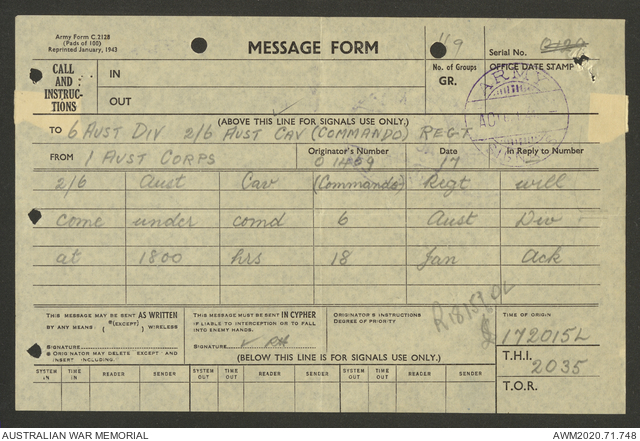 Army Form C.2128
(Pads of 100)
Reprinted January, 1943
MESSAGE FORM
119
Serial No.
CALL AND INSTRUC- TIONS
IN
OUT
No. of Groups
GR.
OFFICE DATE STAMP
ARMY
(ABOVE THIS LINE FOR SIGNALS USE ONLY.)
TO 6 AUST DIV 2/6 AUST CAV (COMMANDO) REGT
FROM 1 AUST CORPS
Originator's Number
O1469
Date
17
In Reply to Number
2/6 Aust Cav (Commando) Regt will
come under comd 6 Aust Div -
at 1800 hrs 18 Jan Ack
THIS MESSAGE MAY BE SENT AS WRITTEN
BY ANY MEANS: (*[EXCEPT] ) WIRELESS
SIGNATURE
ORIGINATOR MAY DELETE EXCEPT AND
INSERT INCLUDING.
THIS MESSAGE MUST BE SENT IN CYPHER
IF LIABLE TO INTERCEPTION OR TO FALL
INTO ENEMY HANDS.
SIGNATURE
ORIGINATOR'S INSTRUCTIONS
DEGREE OF PRIORITY
TIME OF ORIGIN
172015L
T.H.I.
2035
T.O.R.
(BELOW THIS LINE IS FOR SIGNALS USE ONLY.)
SYSTEM IN TIME IN READER SENDER SYSTEM OUT TIME OUT READER SENDER SYSTEM OUT TIME OUT READER SENDER
AUSTRALIAN WAR MEMORIAL
AWM2020.71.748